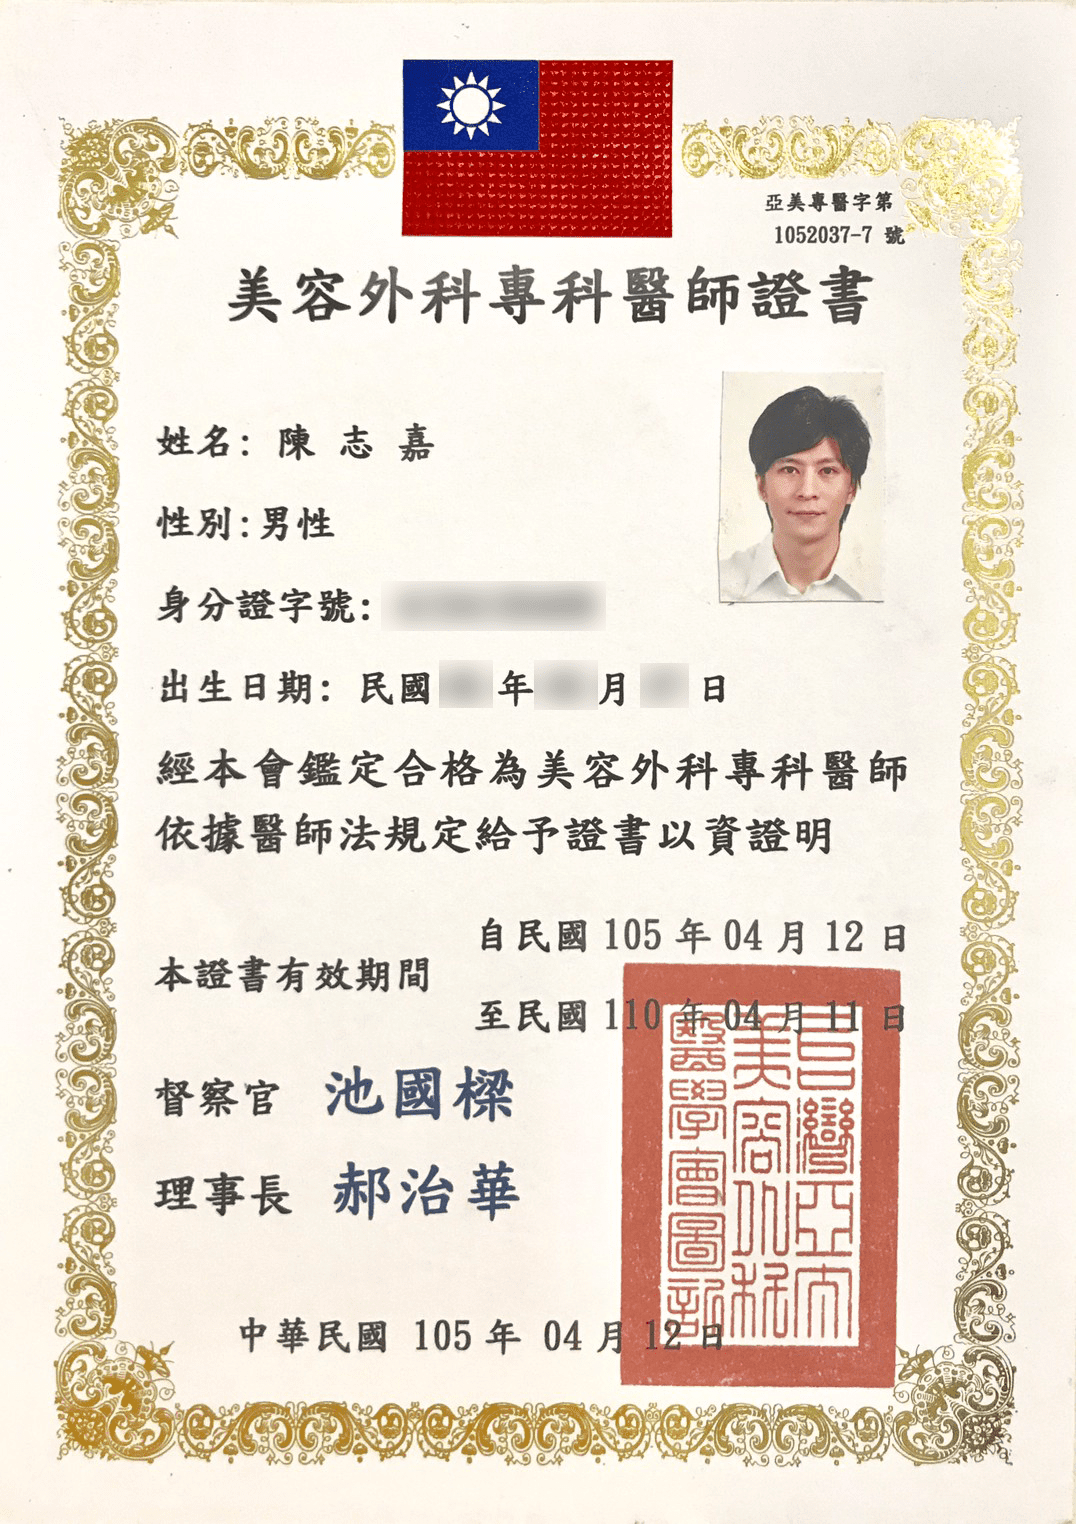 亞美專醫字第
1052037-7 號
美容外科專科醫師證書
姓名: 陳志嘉
性別:男性
身分證字號:
出生日期: 民國 年 月 日
經本會鑑定合格為美容外科專科醫師
依據醫師法規定給予證書以資證明
本證書有效期間
自民國 105 年 04 月 12 日
至民國 110 年 04 月 11 日
督察官 池國樑
理事長 郝治華
台灣亞太
美容外科
醫學會圖記
中華民國 105 年 04 月 12 日